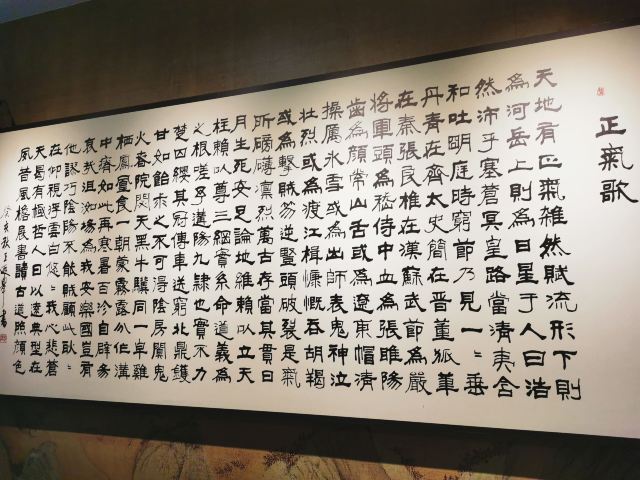 正氣歌
天地有正氣雜然賦流形下則
為河岳上則為日星于人曰浩
然沛乎塞蒼冥皇路當清夷含
和吐明庭時窮節乃見一〻垂
丹青在齊太史簡在晉董狐筆
在秦張良椎在漢蘇武節為嚴
將軍頭為嵇侍中血為張睢陽
齒為顏常山舌或為遼東帽清
操厲冰雪或為出師表鬼神泣
壯烈或為渡江楫慷慨吞胡羯
或為擊賊笏逆豎頭破裂是氣
所磅礴凜烈萬古存當其貫日
月生死安足論地維賴以立天
柱賴以尊三綱實系命道義為
之根嗟予遘陽九隸也實不力
楚囚纓其冠傳車送窮北鼎鑊
甘如飴求之不可得陰房闃鬼
火春院閟天黑牛驥同一皁雞
棲鳳凰食一朝蒙霧露分作溝
中瘠如此再寒暑百沴自辟易
哀哉沮洳場為我安樂國豈有
他謬巧陰陽不能賊顧此耿〻
在仰視浮雲白悠〻我心悲蒼
天曷有極哲人日以遠典型在
夙昔風檐展書讀古道照顏色
秋王書